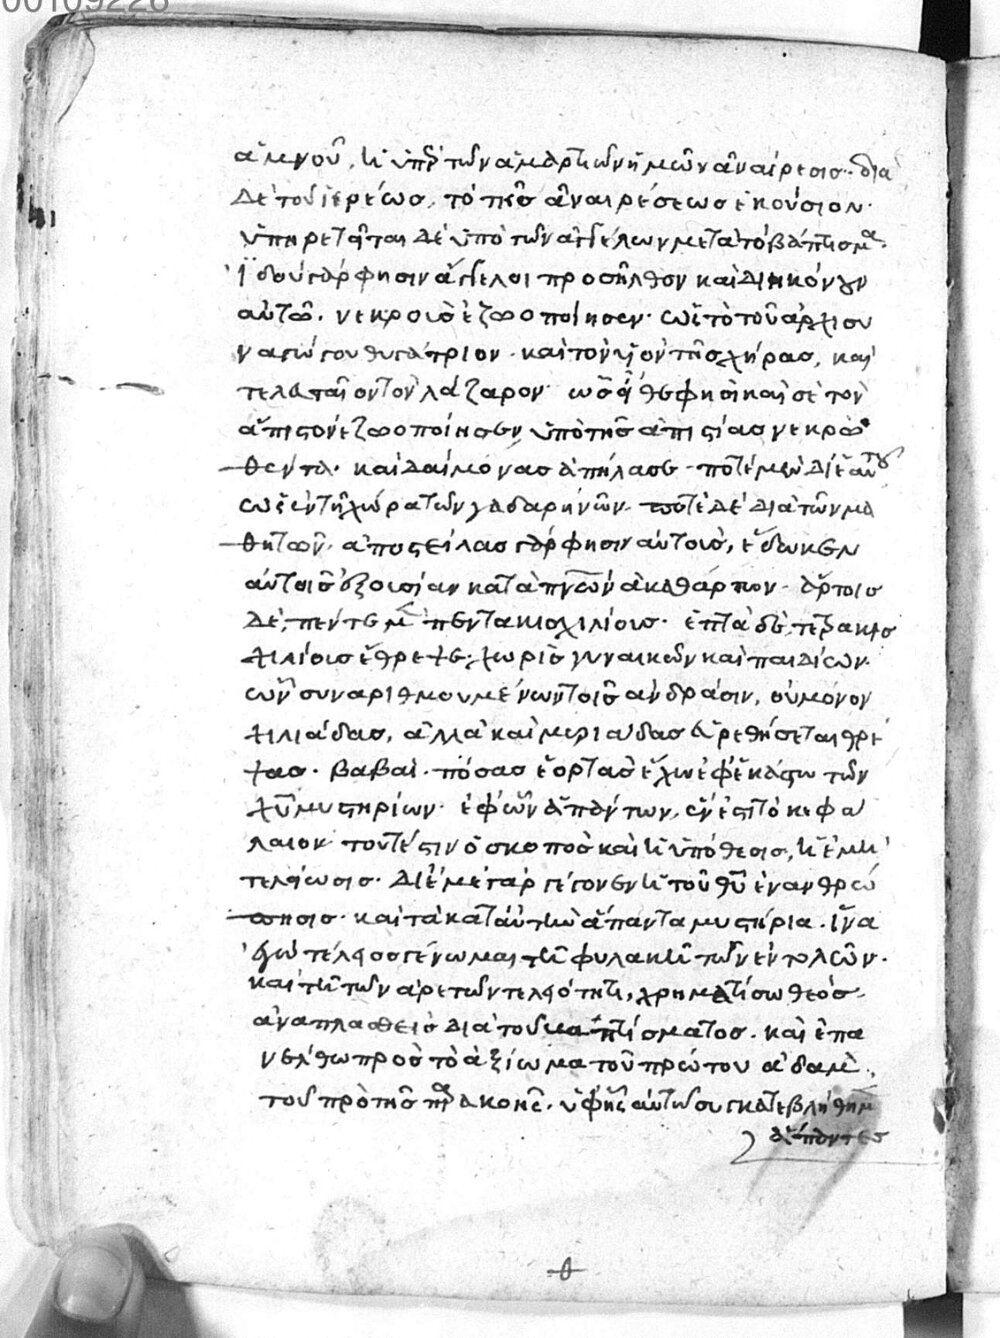 00109226
ἀμνοῦ, ἡ ὑπὲρ τῶν ἁμαρτιῶν ἡμῶν ἀναίρεσις· διὰ
δὲ τοῦ ἱερέως, τὸ τῆς ἀναιρέσεως ἑκούσιον·
ὑπηρετεῖται δὲ ὑπὸ τῶν ἀγγέλων μετὰ τὸ βάπτισμα·
ἰδοὺ γάρ φησιν ἄγγελοι προσῆλθον καὶ διηκόνουν
αὐτῷ. νεκροὺς ἐζωοποίησεν· ὡς τὸ τοῦ ἀρχισυ
ναγώγου θυγάτριον· καὶ τὸν υἱὸν τῆς χήρας, καὶ
τελευταῖον τὸν λάζαρον· φησὶ καὶ σὲ τὸν
ἄπιστον ἐζωοποίησεν ὑπὸ τῆς ἀπιστίας νεκρω
θέντα· καὶ δαίμονας ἀπήλασε· ποτὲ μὲν δι' ἑαυτοῦ
ὡς ἐν τῇ χώρα τῶν γαδαρηνῶν· ποτὲ δὲ διὰ τῶν μα
θητῶν· ἀποστείλας γάρ φησιν αὐτοὺς, ἔδωκεν
αὐτοῖς ἐξουσίαν κατὰ πνων ἀκαθάρτων· ἄρτοις
δὲ, πέντε μὲν πεντακισχιλίους· ἑπτὰ δὲ, τετρακισ
χιλίους ἔθρεψε· χωρὶς γυναικῶν καὶ παιδίων·
ὧν συναριθμουμένων τοῖς ἀνδράσιν, οὐ μόνον
χιλιάδας, ἀλλὰ καὶ μυριάδας εὑρεθήσεται θρέ
ψας· βαβαὶ· πόσας ἑορτὰς ἔχω ἐφ' ἑκάστω τῶν
χυ μυστηρίων· ἐφ' ὧν ἁπάντων, ἕν ἐστι τὸ κεφά
λαιον· τουτέστιν ὁ σκοπὸς καὶ ἡ ὑπόθεσις, ἡ ἐμὴ
τελείωσις· δι' ἐμὲ γὰρ γέγονεν ἡ τοῦ θυ ἐνανθρώ
πησις· καὶ τὰ κατ' αὐτὴν ἅπαντα μυστήρια· ἵνα
ἐγὼ τέλειος γένωμαι τῇ φυλακῇ τῶν ἐντολῶν·
καὶ τῇ τῶν ἀρετῶν τελειότητι, χρηματίσω θεός·
ἀναπλασθεὶς διὰ τοῦ βαπτίσματος· καὶ ἐπα
νέλθω πρὸς τὸ ἀξίωμα τοῦ πρώτου ἀδάμ·
τοῦ πρὸ τῆς παρακοῆς· ὑφ' ἧς αὐτῷ συγκατεβλήθημεν
ἅπαντες